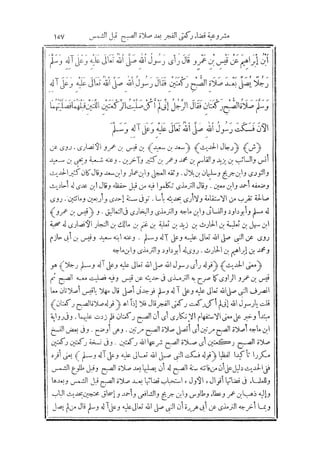 مشروعية قضاء ركعتى الفجر بعد صلاة الصبح قبل الشمس ١٥٧
ابن إبراهيم عن قيس بن عمرو قال رأى رسول الله صلى الله تعالى عليه وعلى آله وسلم
رجلا يصلى بعد صلاة الصبح ركعتين فقال رسول الله صلى الله تعالى عليه وعلى آله
وسلم صلاة الصبح ركعتان فقال الرجل إنى لم أكن صليت الركعتين اللتين قبلهما فصليتهما
الآن فسكت رسول الله صلى الله تعالى عليه وعلى آله وسلم
﴿ش﴾ ﴿رجال الحديث﴾ ﴿سعد بن سعيد﴾ بن قيس بن عمرو الأنصارى. روى عن
أنس والسائب بن يزيد والقاسم بن محمد وعمر بن كثير وآخرين. وعنه شعبة ويحيى بن سعيد
والثورى وابن جريج وسليمان بن بلال. وثقه العجلى وابن عمار وابن سعد وقال كان كثير الحديث
وضعفه أحمد وابن معين. وقال الترمذى تكلموا فيه من قبل حفظه وقال ابن عدى له أحاديث
صالحة تقرب من الاستقامة ولا أرى بحديثه بأسا. توفى سنة إحدى وأربعين ومائة. روى
له مسلم وأبو داود والنسائى وابن ماجه والترمذى والبخارى فى التعاليق. و﴿قيس بن عمرو﴾
ابن سهل بن ثعلبة بن الحارث بن زيد بن ثعلبة بن غنم بن مالك بن النجار الأنصارى له صحبة
روى عن النبى صلى الله تعالى عليه وعلى آله وسلم. وعنه ابنه سعيد وقيس بن أبى حازم
ومحمد بن إبراهيم بن الحارث. روى له أبو داود والترمذى وابن ماجه
﴿معنى الحديث﴾ ﴿قوله رأى رسول الله صلى الله تعالى عليه وعلى آله وسلم رجلا﴾ هو
قيس بن عمرو الراوى كما صرح به الترمذى فى حديثه عن قيس وفيه فصليت معه الصبح ثم
انصرف النبى صلى الله تعالى عليه وعلى آله وسلم فوجدنى أصلى قال مهلا ياقيس أصلاتان معا
قلت يارسول الله إنى لم أكن ركعت ركعتى الفجر قال فلا إذا اهـ ﴿قوله صلاة الصبح ركعتان﴾
مبتدأ وخبر على معنى الاستفهام الإنكارى أى أن الصبح ركعتان فلم زدت عليهما. وفى رواية
ابن ماجه أصلاة الصبح مرتين أى أتصلى صلاة الصبح مرتين. وهى أوضح. وفى بعض النسخ
صلاة الصبح ركعتين أى صلاة الصبح شرعها الله ركعتين. وفى نسخة ركعتين ركعتين
مكررا تأكيدا لفظيا ﴿قوله فسكت النبى صلى الله تعالى عليه وعلى آله وسلم﴾ يعنى أقره
فى الحديث دليل على أن من فاتته سنة الصبح له أن يصليها بعد صلاة الصبح وقبل طلوع الشمس
وللعلماء فى قضائها أقوال. الأول. استحباب قضائها بعد صلاة الصبح قبل الشمس وبعدها
وإليه ذهب ابن عمر وعطاء وطاوس وابن جريج والشافعى وأحمد وإسحاق محتجين بحديث الباب
وبما أخرجه الترمذى عن أبى هريرة أن النبى صلى الله تعالى عليه وعلى آله وسلم قال من لم يصل